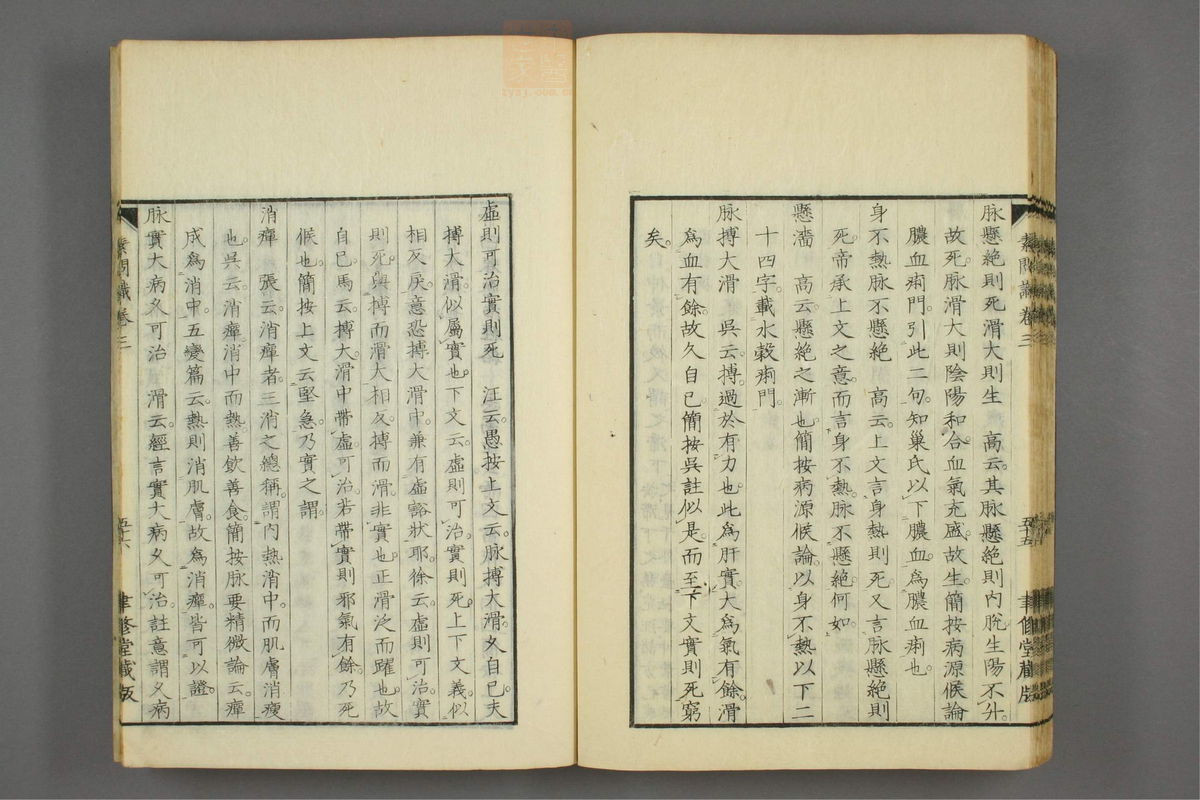 脉懸絶則死滑大則生　高云其脉懸絶則内脱生陽不升
故死脉滑大則陰陽和合血氣充盛故生簡按病源候論
膿血痢門引此二句知巢氏以下膿血爲膿血痢也
身不熱脉不懸絶　高云上文言身熱則死又言脉懸絶則
死帝承上文之意而言身不熱脉不懸絶何如
懸濇　高云懸絶之漸也簡按病源候論以身不熱以下二
十四字載水穀痢門
脉搏大滑　吳云搏過於有力也此爲肝實大爲氣有餘滑
爲血有餘故久自已簡按吳註似是而至下文實則死窮
矣
素問識卷三
五十五
聿修堂藏版
虛則可治實則死　汪云愚按上文云脉搏大滑久自已夫
搏大滑似屬實也下文云虛則可治實則死上下文義似
相反戾意恐搏大滑中兼有虛豁狀耶徐云虛則可治實
則死與搏而滑大相反搏而滑非實也正滑泛而躍也故
自已馬云搏大滑中帶虛可治若帶實則邪氣有餘乃死
候也簡按上文云堅急乃實之謂
消癉　張云消癉者三消之總稱謂内熱消中而肌膚消瘦
也吳云消癉消中而熱善飲善食簡按脉要精微論云癉
成爲消中五變篇云熱則消肌膚故爲消癉皆可以證
脉實大病久可治　滑云經言實大病久可治註意謂久病
素問識卷三
五十六
聿修堂藏版
zysj.com.cn